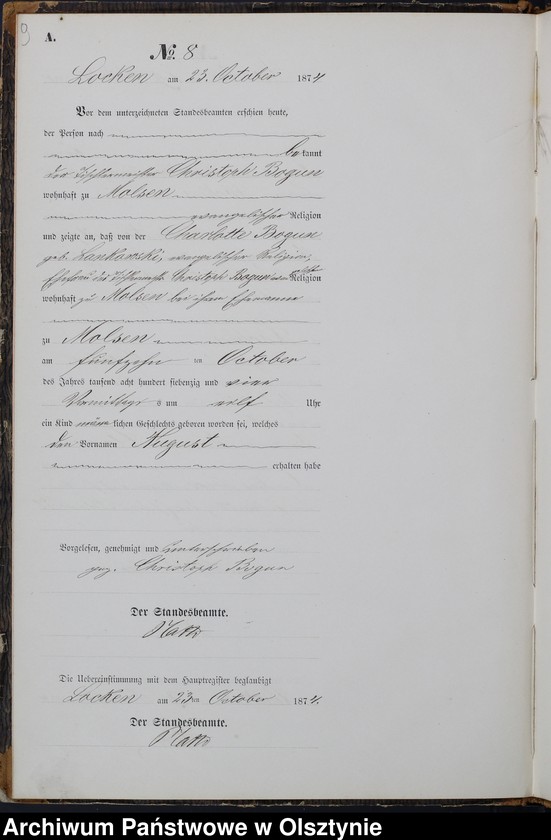 9
A.
No. 8
Locken am 23. October 1874
Vor dem unterzeichneten Standesbeamten erschien heute,
der Person nach
bekannt
der Tischlermeister Christoph Bogun
wohnhaft zu Molsen
evangelischer Religion
und zeigte an, daß von der Charlotte Bogun
geb. Lankowski, evangelischer Religion,
Ehefrau des Christoph Bogun Religion
wohnhaft zu Molsen bei ihrem Ehemanne
zu Molsen
am fünfzehn ten October
des Jahres tausend acht hundert siebenzig und vier
Vormittags um elf Uhr
ein Kind männlichen Geschlechts geboren worden sei, welches
den Vornamen August
erhalten habe
Vorgelesen, genehmigt und unterschrieben
gez. Christoph Bogun
Der Standesbeamte.
Die Uebereinstimmung mit dem Hauptregister beglaubigt
Locken am 23ten October 1874.
Der Standesbeamte.
Archiwum Państwowe w Olsztynie